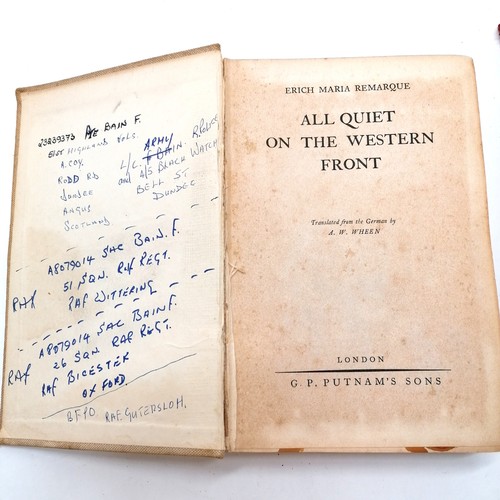 23239373 Pte BAIN F.
51st HIGHLAND VOLS.
A. COY
RODD RD
DUNDEE
ANGUS
SCOTLAND
ARMY
L/C. BAIN
and 4/5 BLACK WATCH
BELL ST
DUNDEE
RAF A8079014 SAC BAIN. F.
51 SQN. RAF REGT.
RAF WITTERING
RAF A8079014 SAC BAIN F.
26 SQN RAF REGT.
RAF BICESTER
OXFORD.
BFPO RAF. GUTERSLOH.
ERICH MARIA REMARQUE
ALL QUIET
ON THE WESTERN
FRONT
Translated from the German by
A. W. WHEEN
LONDON
G. P. PUTNAM'S SONS